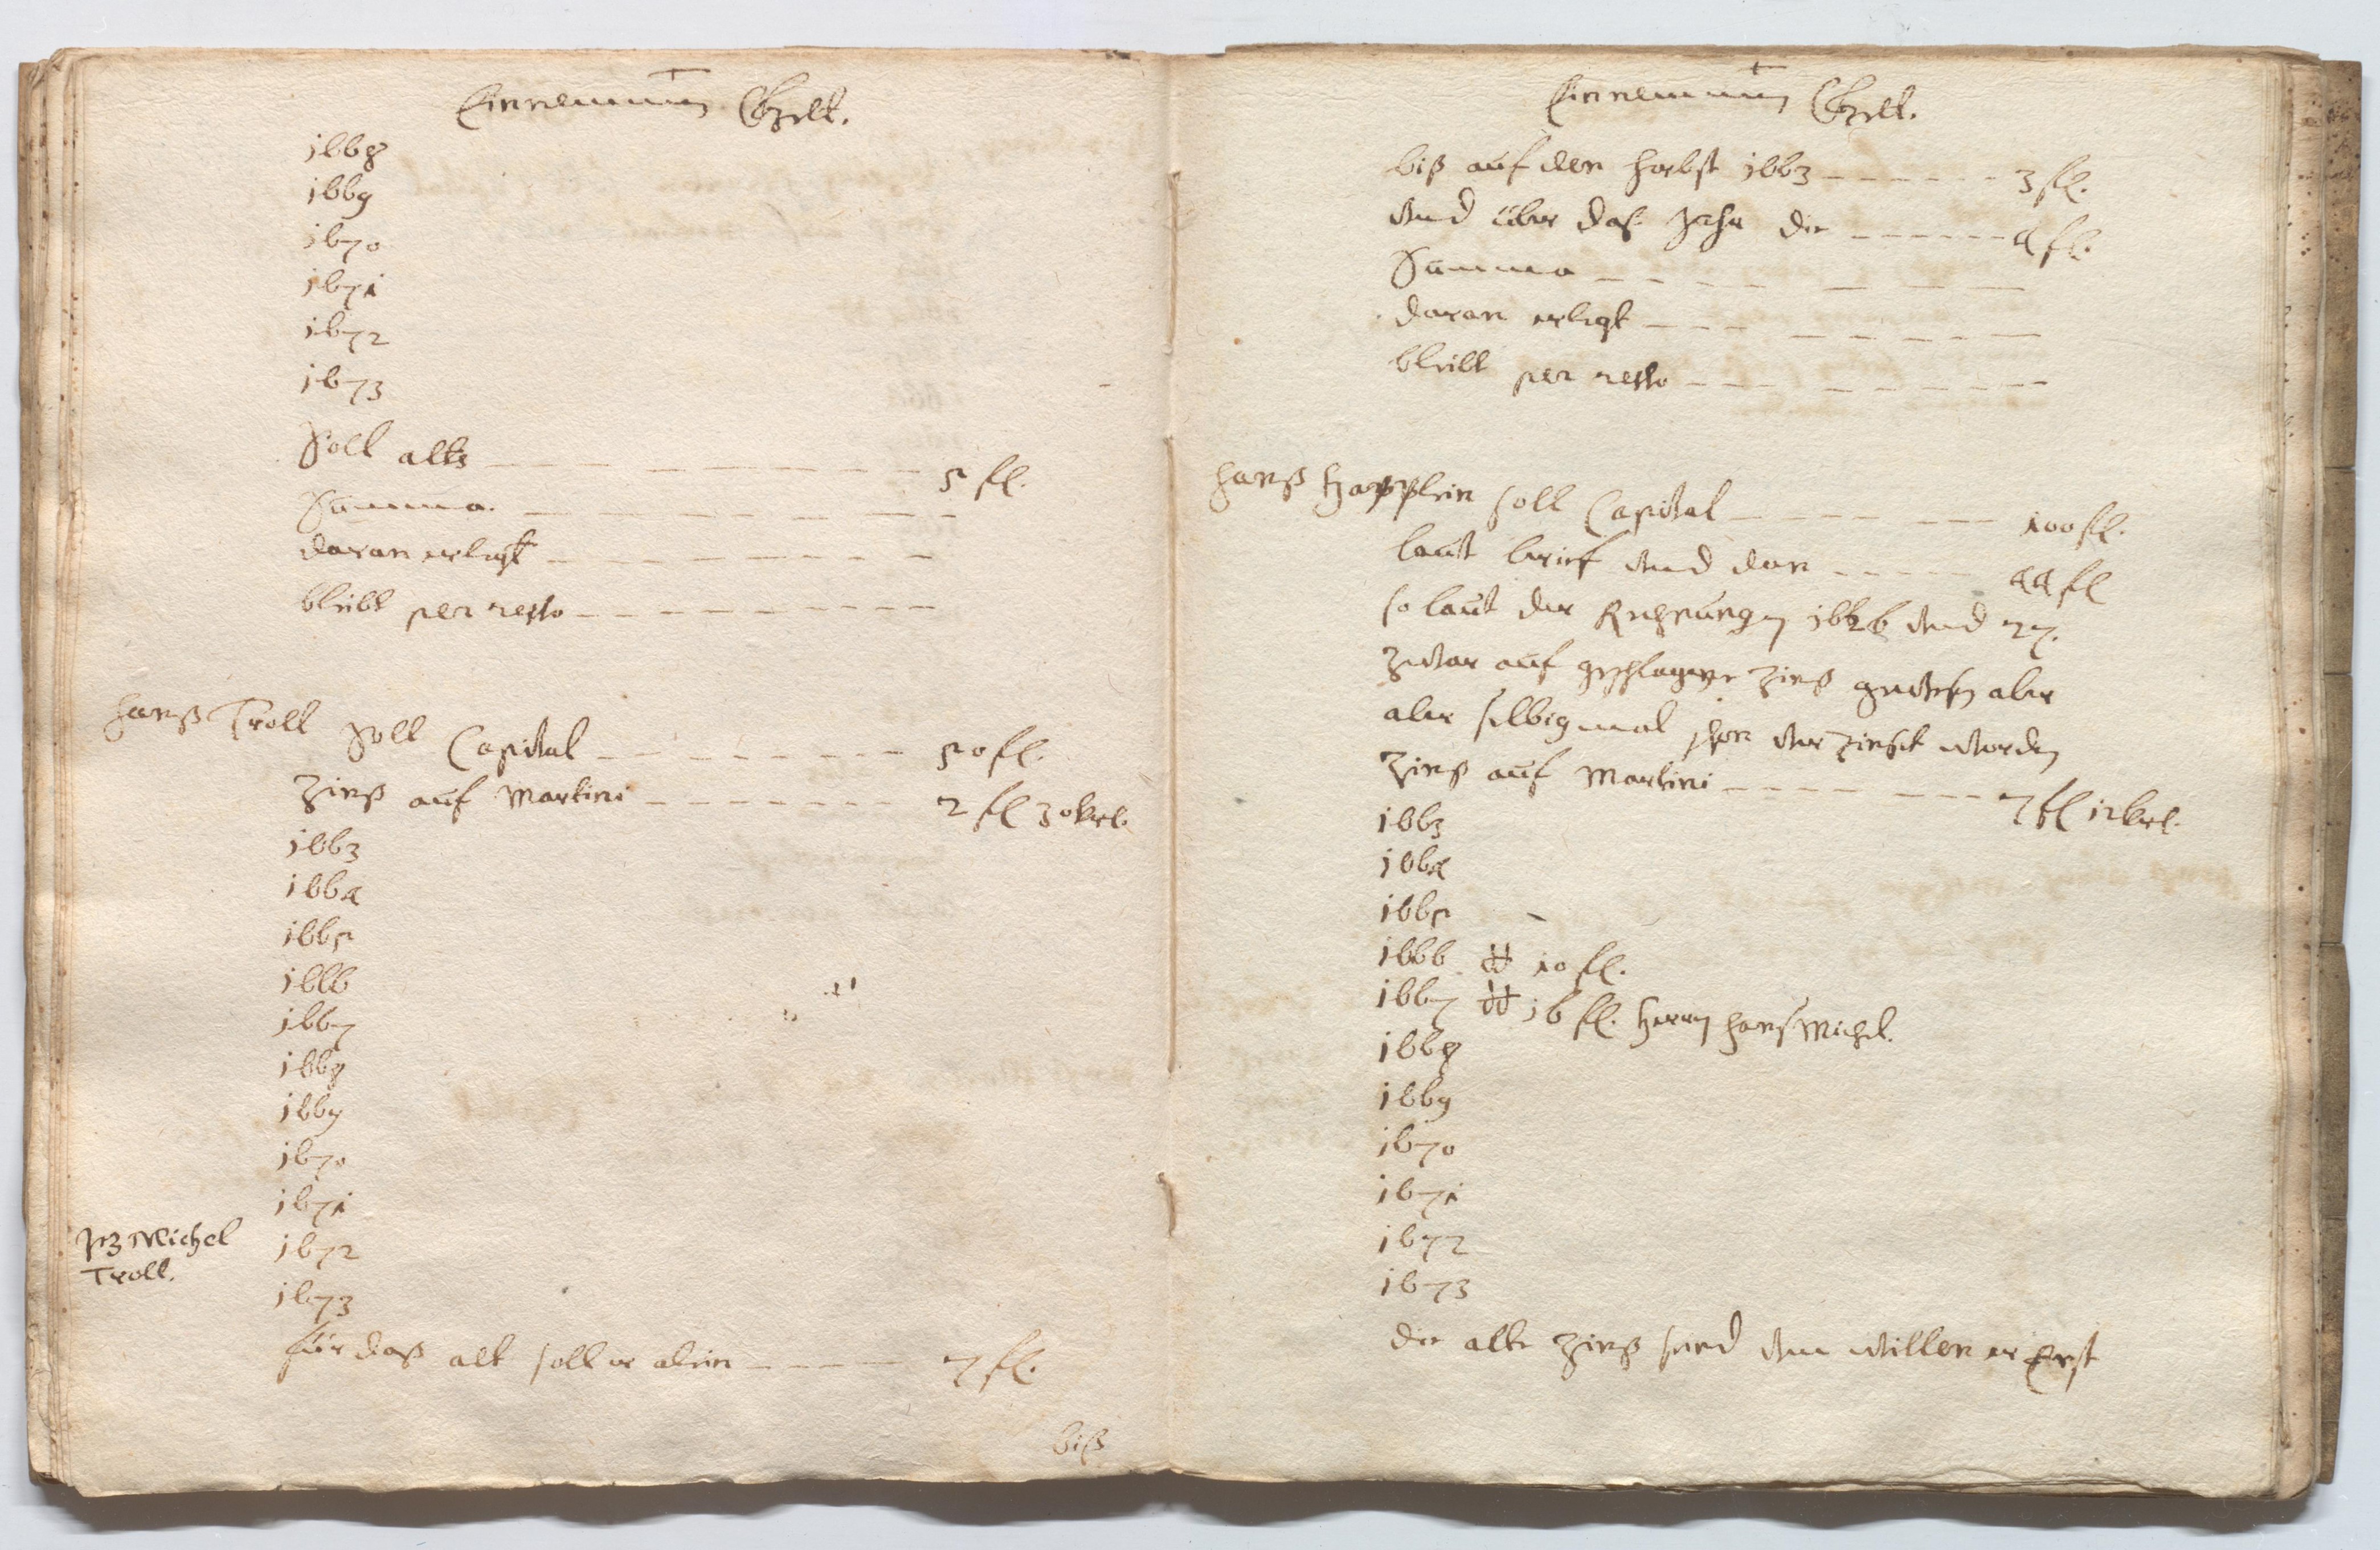 Einnemmung Gelt.
1668
1669
1670
1671
1672
1673
Soll alts — 5 fl.
Summa
daran erlegt
bleibt per resto
Hanß Troll Soll Capital — 50 fl.
Zinß auf Martini — 2 fl 30 kr.
1663
1664
1665
1666
1667
1668
1669
1670
1671
Jez Michel 1672
Troll.
1673
für daß alt soll er allein — 7 fl.
biß
Einnemmung Gelt.
biß auf den Herbst 1663 — 3 fl.
vnd über das Jahr die — 4 fl.
Summa
daran erlegt
bleibt per resto
Hanß Happlein soll Capital — 100 fl.
laut brief vnd dan — 44 fl
so laut der Rechnungen 1626 vnd 27.
zuvor auf geschlagene Zinß gewesen aber
aber selbig mal schon verzinst worden
Zinß auf Martini — 7 fl 12 kr.
1663
1664
1665
1666 dt 10 fl.
1667 dt 16 fl. Herrn Hans Michel.
1668
1669
1670
1671
1672
1673
die alte Zinß seind vm willen er Erst